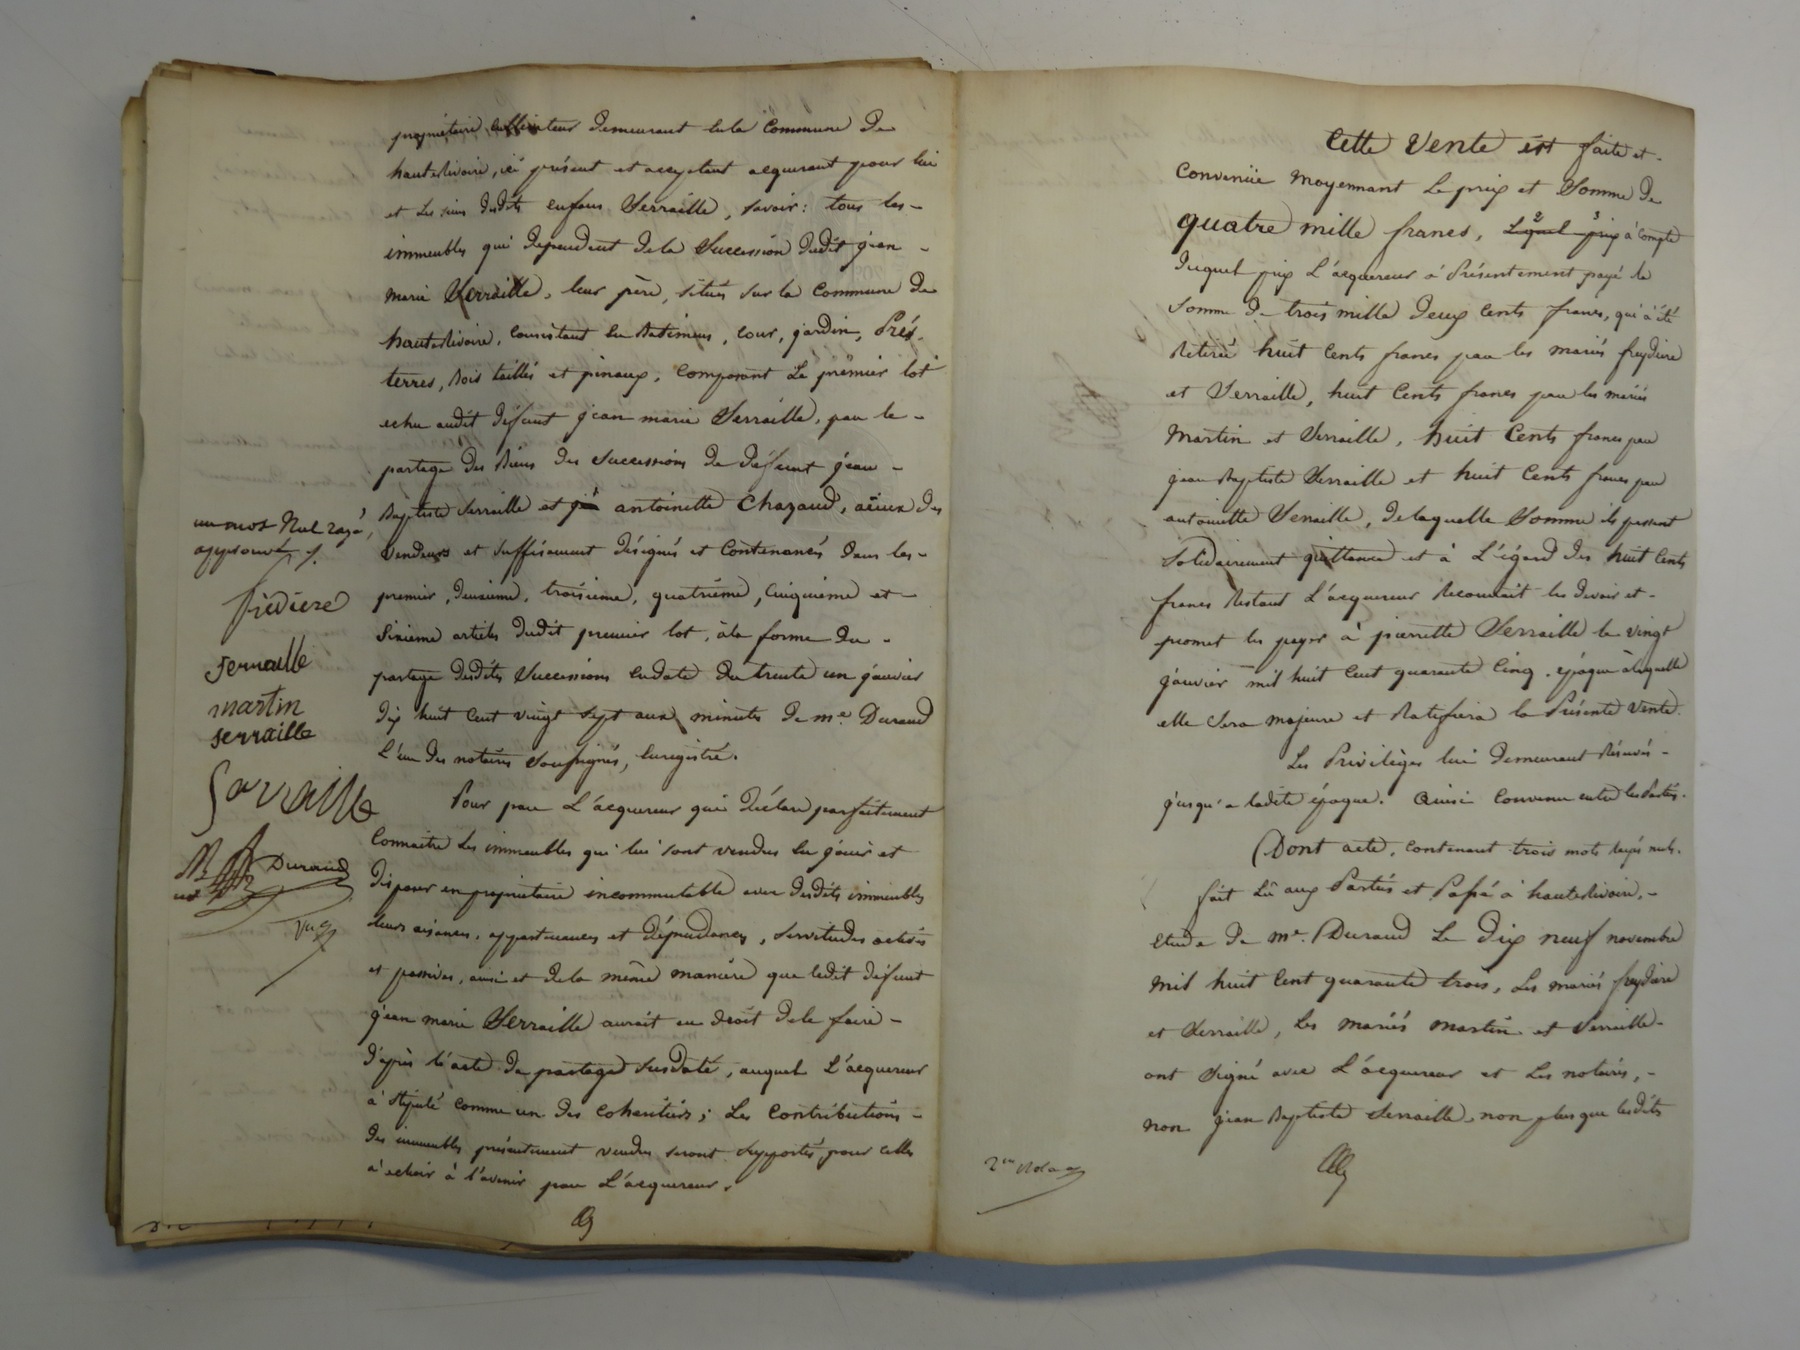 propriétaire cultivateur demeurant en la Commune de
hauterivoire, ici présent et acceptant acquerant pour lui
et les siens desdits enfans Serraille, savoir : tous les -
immeubles qui dependent de la Succession dudit jean -
marie Serraille, leur père, situés sur la Commune de
hauterivoire, consistant en Batimens, cour, jardin, Prés,
terres, Bois taillés et pinaux, Composant Le premier lot
echu audit défunt jean marie Serraille, par le -
partage des Biens des Successions de défunt jean -
Baptiste Serraille et antoinette Chazaud, aïeux des
Vendeurs et suffisament désignés et Contenancés dans les -
premier, deuxieme, troisieme, quatrième, Cinquième et -
Sixieme articles dudit premier lot, à la forme du -
partage desdites Successions en date du trente un janvier
dix huit Cent vingt sept aux minutes de me. Durand
L'un des notaires soussignés, Enregistré.
un mot Nul rayé,
approuvé /.
fredière
serraille
martin
serraille
Serraille
Durand
Pour par L'acquereur qui déclare parfaitement
Connaitre les immeubles qui lui sont vendus en jouir et
disposer en propriétaire incommutable avec desdits immeubles
leurs aisances, appartenances et dépendances, Servitudes actives
et passives, ainsi et de la même manière que ledit défunt
jean marie Serraille aurait eu droit de le faire -
d'après l'acte de partage susdaté, auquel L'acquereur
a stipulé comme un des cohéritiers ; Les Contributions -
des immeubles présentement vendus seront supportés pour celles
à echoir à l'avenir par L'acquereur.
Cette Vente est faite et -
Convenüe moyennant Le prix et Somme de
quatre mille francs, Lequel prix à compte
duquel prix L'acquereur a Présentement payé la
Somme de trois mille deux Cents francs, qui a été
Retirée huit Cents francs par les mariés freydiere
et Serraille, huit Cents francs par les mariés
Martin et Serraille, huit Cents francs par
jean Baptiste Serraille et huit Cents francs par
antoinette Serraille, de laquelle Somme ils passent
Solidairement quittance et à L'égard des huit Cents
francs Restant L'acquereur Reconnait les devoir et -
promet les payer à pierrette Serraille le vingt
janvier mil huit Cent quarante Cinq, epoque à laquelle
elle Sera majeure et Ratifiera la Présente Vente.
Les Privilèges lui demeurant Réservés -
jusqu'a ladite époque. Ainsi Convenu entre les Parties.
Dont acte, Contenant trois mots rayés nuls.
fait Lû aux Parties et Passé à hauterivoire, -
Etude de me. Durand Le dix neuf novembre
Mil huit Cent quarante trois, Les mariés freydiere
et Serraille, Les Mariés Martin et Serraille -
ont Signé avec L'acquereur et Les notaires, -
non jean Baptiste Serraille, non plus que lesdits